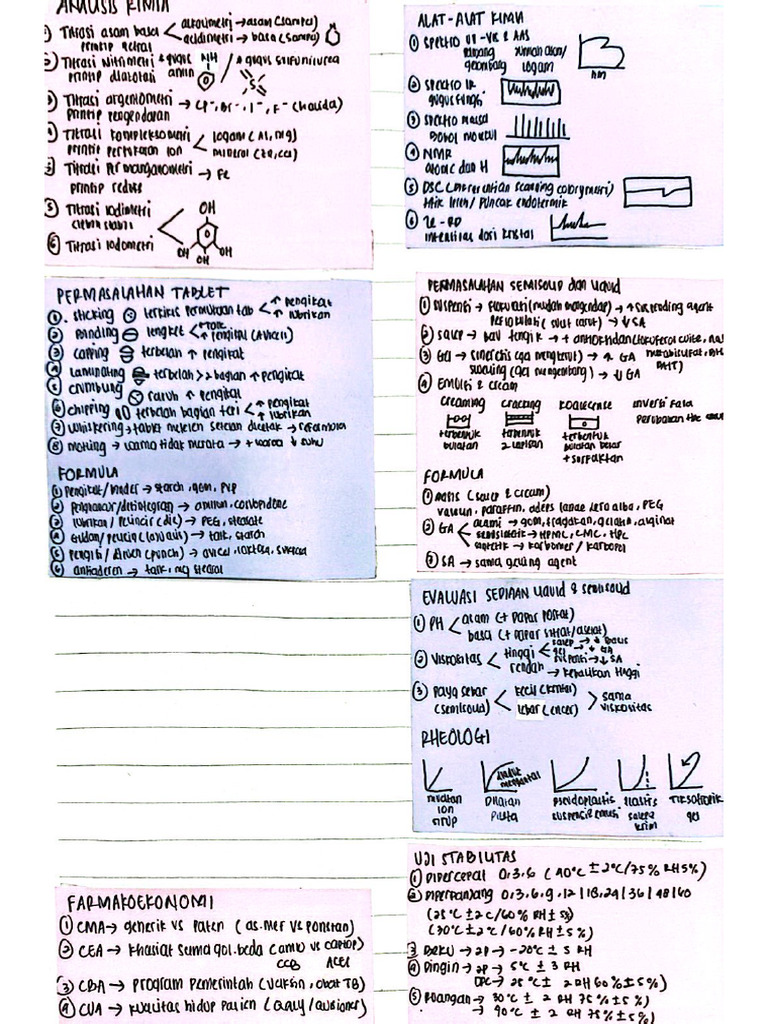 ANALISIS KIMIA
① Titrasi asam basa < alkalimetri → asam (sampel)
prinsip netral acidimetri → basa (sampel)
② Titrasi Nitrimetri + gugus NH / + gugus sulfonilurea
prinsip diazotasi amin
③ Titrasi argentometri → Cl⁻, Br⁻, I⁻, F⁻ (halida)
prinsip pengendapan
④ Titrasi kompleksometri < logam (Al, Mg)
prinsip pertukaran ion mineral (Zn, Ca)
⑤ Titrasi Permanganometri → Fe
prinsip redoks
⑤ Titrasi Iodimetri OH
⑥ Titrasi Iodometri OH OH OH
ALAT-ALAT KIMIA
① SPEKTRO UV-VIS & AAS
panjang gelombang logam
nm
② SPEKTRO IR
gugus fungsi
③ spektro massa
bobot molekul
④ NMR
atomic dan H
⑤ DSC (differential scanning calorymetri)
titik leleh / puncak endotermik
⑥ X-RD
intensitas dari kristal
PERMASALAHAN TABLET
①. sticking < ↑ pengikat
↑ lubrikan
② Binding → lengket < + talk
↑ pengikat (Avicel)
③ capping terbelah ↑ pengikat
④ Laminating → terbelah > 2 bagian ↑ pengikat
⑤ crumbling rapuh ↑ pengikat
⑥ chipping terbelah bagian tepi < ↑ pengikat
↑ lubrikan
⑦ whiskering → tablet meleleh setelah dicetak → reformula
⑧ motling → warna tidak merata → + warna ↓ suhu
FORMULA
① Pengikat/binder → starch, gom, PVP
② Penghancur/desintegran → amilum, crosvopidone
③ lubrikan / Pelincir (die) → PEG, stearate
④ Glidan/pelicin (laviais) → talk, starch
⑤ pengisi / diluen (punch) → avicel, laktosa, sukrosa
⑥ antiaderen → talk, mg stearat
PERMASALAHAN SEMISOLID dan Liquid
① SUSPENSI → flokulasi (mudah mengendap) → ↑ suspending agent
deflokulasi (sulit larut) → ↓ SA
② salep → bau tengik → + antioksidan
③ Gel → sineresis (gel mengkerut) → ↑ GA
swelling (gel mengembang) → ↓ GA
④ EMULSI & cream
creaming cracking koalesense inversi fasa
terbentuk bulatan terbentuk 2 lapisan terbentuk bulatan besar
+ surfaktan
FORMULA
① basis (salep & cream)
vaselin, paraffin, adeps lanae, cera alba, PEG
② GA < alami → gom, tragakan, gelatin, alginat
semisintetik → HPMC, CMC, HPC
sintetik → karbomer / karbopol
③ SA → sama gelling agent
EVALUASI SEDIAAN Liquid & semisolid
① PH < asam (+ dapar fosfat)
basa (+ dapar sitrat/asetat)
② Viskositas < tinggi < salep → ↓ basis
gel → ↓ GA
suspensi → ↓ SA
rendah → kebalikan tinggi
③ Daya sebar < kecil (kental) > sama
(semisolid) lebar (encer) viskositas
RHEOLOGI
newtonian dilatan pseudoplastis plastis Tiksotropik
sirup pasta suspensi emulsi salep krim gel
FARMAKOEKONOMI
① CMA → generik vs Paten (as.mef vs ponstan)
② CEA → khasiat sama gol. beda (amlo vs captop)
CCB ACEI
③ CBA → program pemerintah (vaksin, obat TB)
④ CUA → kualitas hidup pasien (QALY/
UJI STABILITAS
① Dipercepat 0,3,6 (40°C ± 2°C/75% RH 5%)
② Diperpanjang 0,3,6,9,12 | 18,24 | 36 | 48 | 60
(25°C ± 2 C/60% RH ± 5%)
(30°C ± 2°C/60% RH ± 5%)
③ Beku → 2P → -20°C ± 5 RH
④ Dingin → 2P → 5°C ± 3 RH
DPC → 25°C ± 2 RH 60% ± 5%)
⑤ Ruangan → 30°C ± 2 RH 75% ± 5%)
→ 40°C ± 2 RH 75% ± 5%)